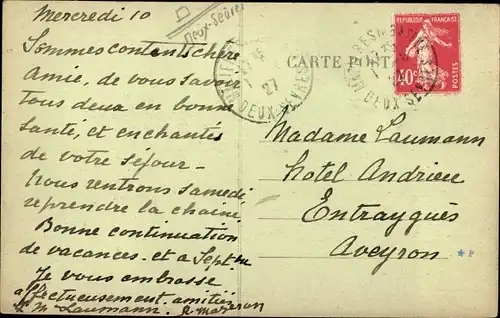 Mercredi 10
Sommes contents chère
Amie, de vous savoir
tous deux en bonne
santé, et enchantés
de votre séjour -
Nous rentrons samedi
reprendre la chaine
Bonne continuation
de vacances. et a Septbre
Je vous embrasse
affectueusement. amitiés
à Mr Laumann.
D
Deux-Sèvres
27
DEUX-SEVRES
CARTE POSTALE
REPUBLIQUE FRANÇAISE
40c
POSTES
DEUX-SEVRES
Madame Laumann
hotel Andrieu
Entraygues
Aveyron